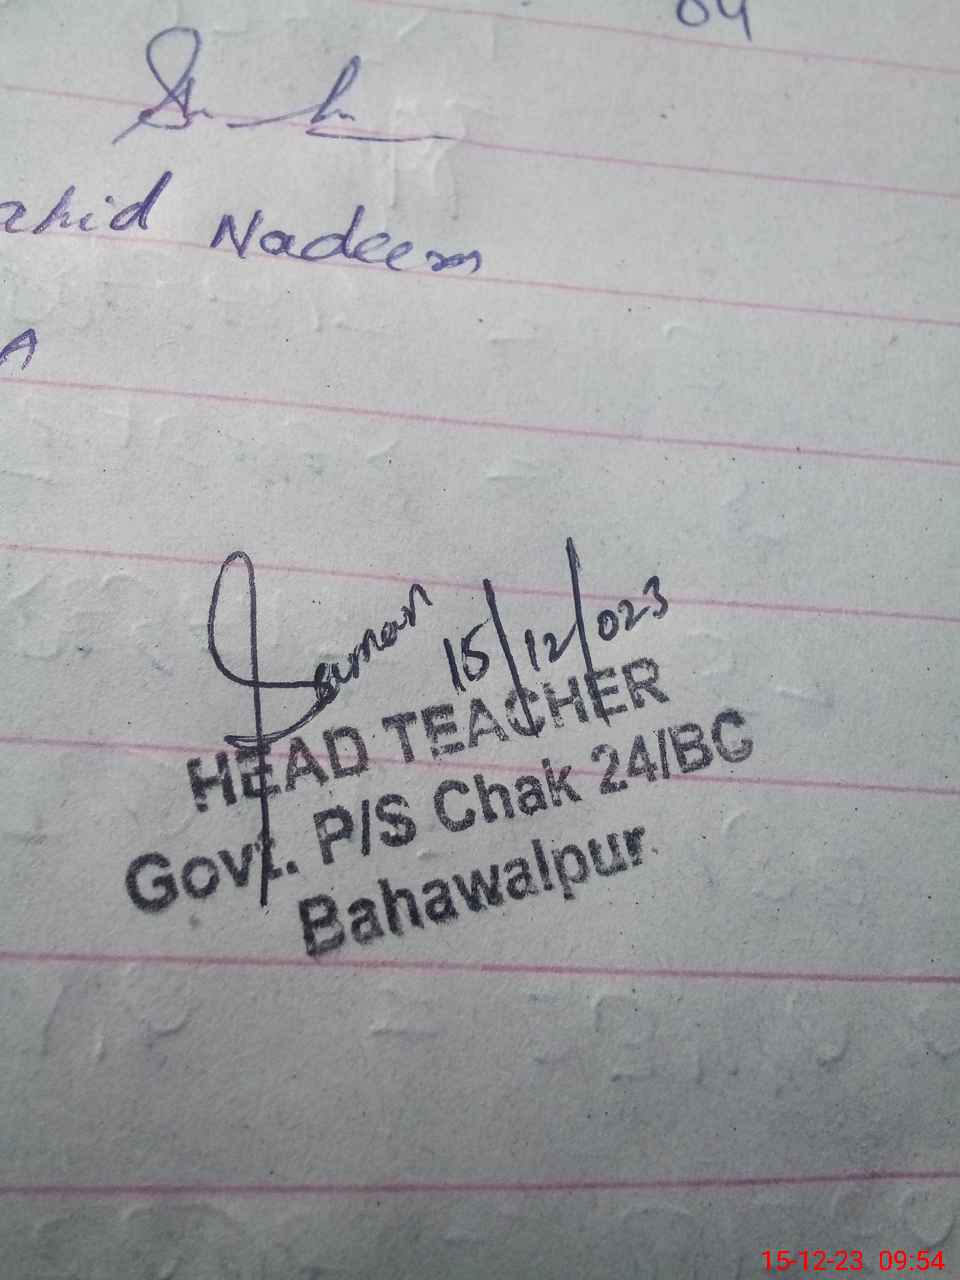 04
ahid Nadeem
A
15/12/023
HEAD TEACHER
Govt. P/S Chak 24/BC
Bahawalpur
15-12-23 09:54